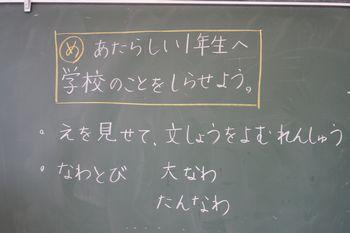 め あたらしい1年生へ
学校のことをしらせよう。
。えを見せて、文しょうをよむれんしゅう
。なわとび 大なわ
たんなわ